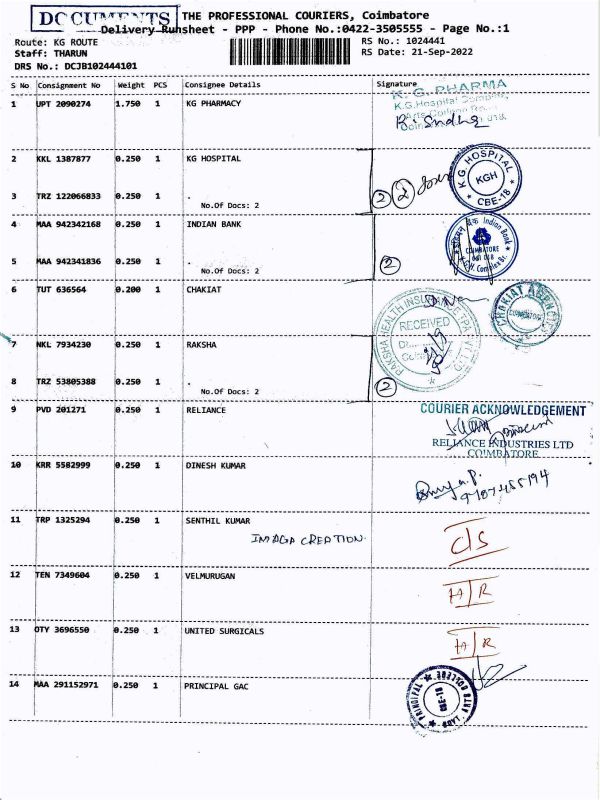 DOCUMENTS
THE PROFESSIONAL COURIERS, Coimbatore
Delivery Runsheet - PPP - Phone No.:0422-3505555 - Page No.:1
Route: KG ROUTE
RS No.: 1024441
Staff: THARUN
RS Date: 21-Sep-2022
DRS No.: DCJB102444101
S No Consignment No Weight PCS Consignee Details Signature
1 UPT 2090274 1.750 1 KG PHARMACY
K.G. PHARMA
K.G.Hospital
Arts College
2 KKL 1387877 0.250 1 KG HOSPITAL
K G HOSPITAL
KGH
CBE-18
3 TRZ 122066833 0.250 1 .
No.Of Docs: 2
2 2
4 MAA 942342168 0.250 1 INDIAN BANK
Indian Bank
COIMBATORE
641 018
5 MAA 942341836 0.250 1 .
No.Of Docs: 2
2
6 TUT 636564 0.200 1 CHAKIAT
RAKSHA HEALTH INSURANCE TPA PVT LTD
RECEIVED
CHAKIAT AGENCIES
7 NKL 7934230 0.250 1 RAKSHA
8 TRZ 53805388 0.250 1 .
No.Of Docs: 2
2
9 PVD 201271 0.250 1 RELIANCE
COURIER ACKNOWLEDGEMENT
RELIANCE INDUSTRIES LTD
COIMBATORE
10 KRR 5582999 0.250 1 DINESH KUMAR
11 TRP 1325294 0.250 1 SENTHIL KUMAR
IMAGA CREATION
C/S
12 TEN 7349604 0.250 1 VELMURUGAN
13 OTY 3696550 0.250 1 UNITED SURGICALS
14 MAA 291152971 0.250 1 PRINCIPAL GAC
PRINCIPAL
CBE-18